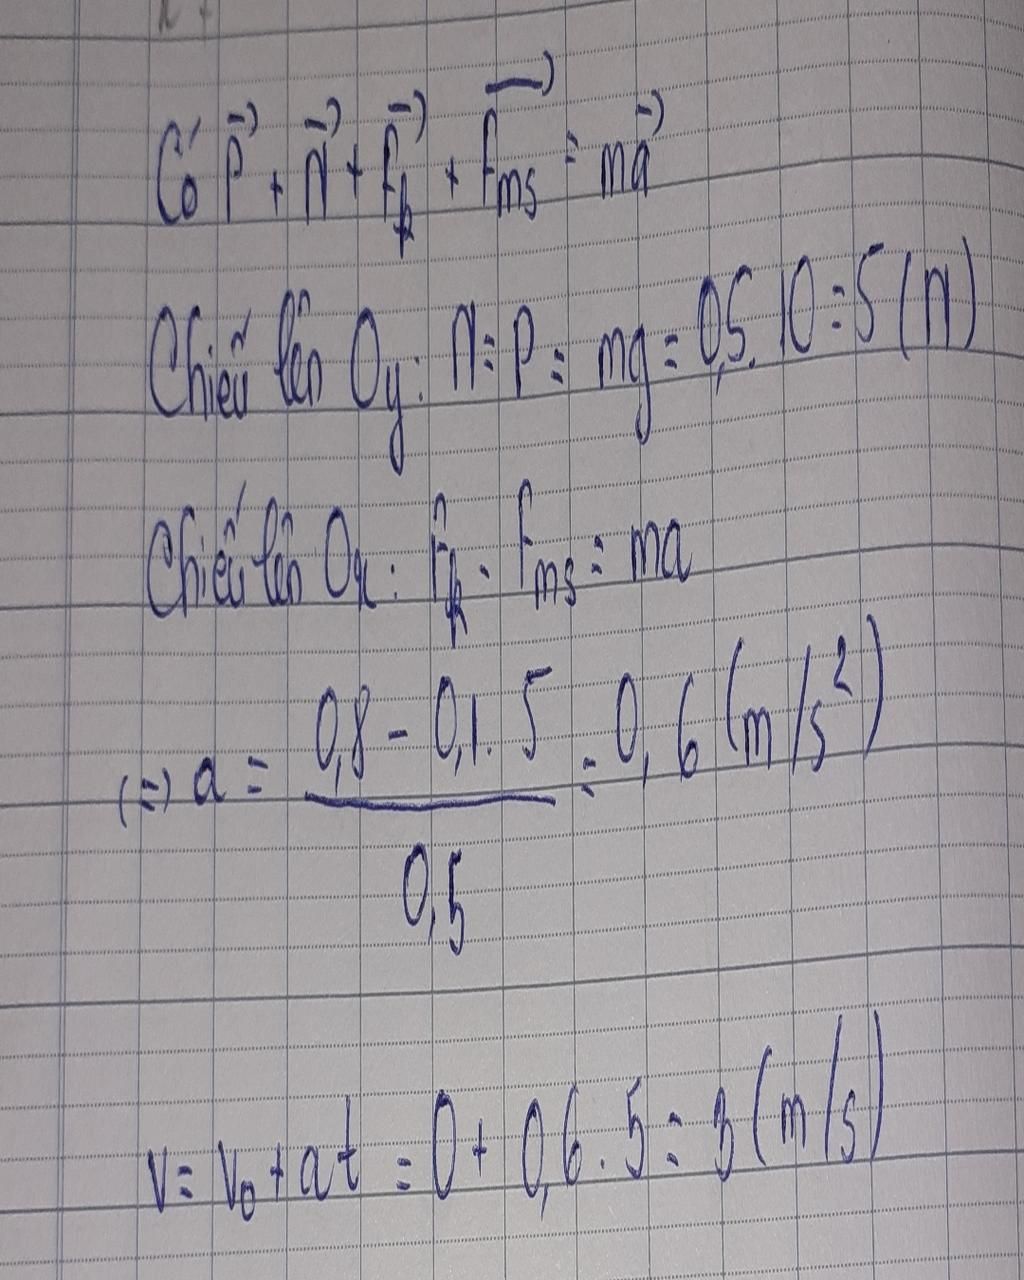 Có P⃗ + N⃗ + F⃗k + F⃗ms = ma⃗
Chiếu lên Oy: N = P = mg = 0,5.10 = 5 (N)
Chiếu lên Ox: Fk - Fms = ma
(=) a = (0,8 - 0,1.5)/0,5 = 0,6 (m/s²)
v = v₀ + at = 0 + 0,6.5 = 3 (m/s)